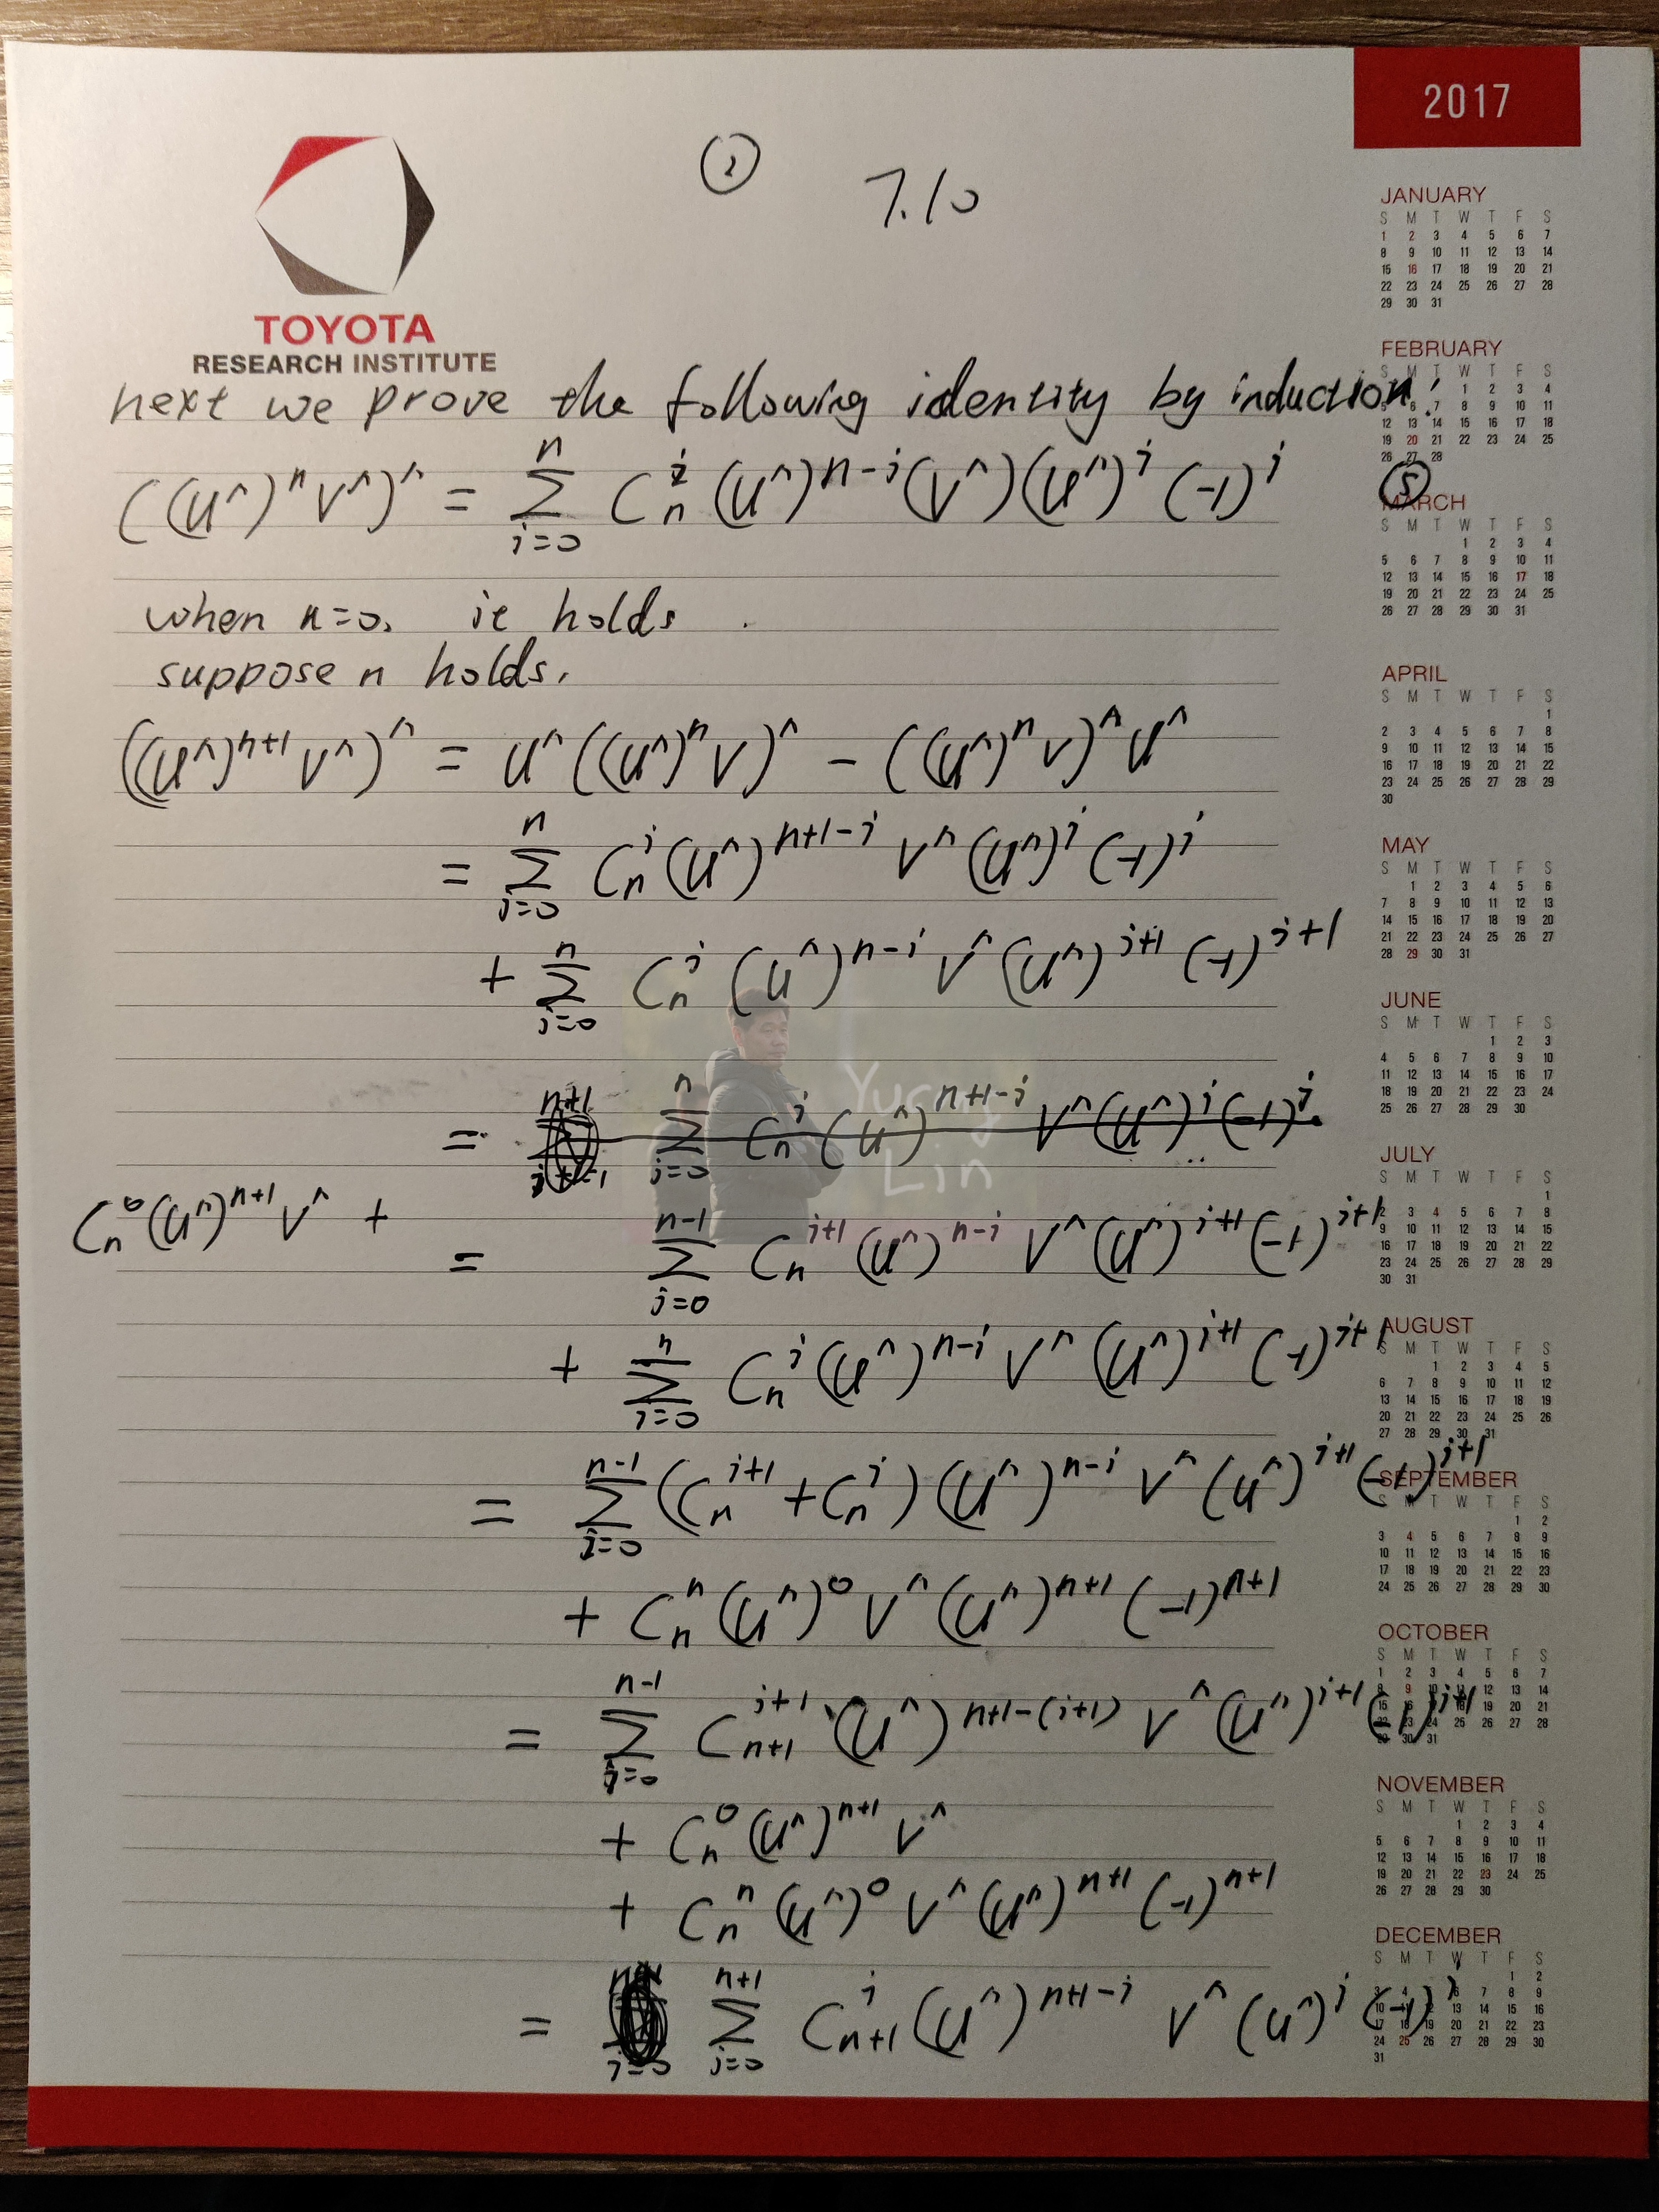 2017
② 7.10
TOYOTA
RESEARCH INSTITUTE
next we prove the following identity by induction:
((u^)^n v^)^ = Σ_{i=0}^{n} C_n^i (u^)^{n-i} (v^)(u^)^i (-1)^i ⑤
when n=0, it holds.
suppose n holds,
((u^)^{n+1} v^)^ = u^((u^)^n v)^ - ((u^)^n v)^ u^
= Σ_{i=0}^{n} C_n^i (u^)^{n+1-i} v^ (u^)^i (-1)^i
+ Σ_{i=0}^{n} C_n^i (u^)^{n-i} v^ (u^)^{i+1} (-1)^{i+1}
= Σ_{i=0}^{n} C_n^i (u^)^{n+1-i} v^ (u^)^i (-1)^i
Yuang
Lin
C_n^0 (u^)^{n+1} v^ +
= Σ_{i=0}^{n-1} C_n^{i+1} (u^)^{n-i} v^ (u^)^{i+1} (-1)^{i+1}
+ Σ_{i=0}^{n} C_n^i (u^)^{n-i} v^ (u^)^{i+1} (-1)^{i+1}
= Σ_{i=0}^{n-1} (C_n^{i+1} + C_n^i) (u^)^{n-i} v^ (u^)^{i+1} (-1)^{i+1}
+ C_n^n (u^)^0 v^ (u^)^{n+1} (-1)^{n+1}
= Σ_{i=0}^{n-1} C_{n+1}^{i+1} (u^)^{n+1-(i+1)} v^ (u^)^{i+1} (-1)^{i+1}
+ C_n^0 (u^)^{n+1} v^
+ C_n^n (u^)^0 v^ (u^)^{n+1} (-1)^{n+1}
= Σ_{i=0}^{n+1} C_{n+1}^i (u^)^{n+1-i} v^ (u^)^i (-1)^i
JANUARY
S M T W T F S
1 2 3 4 5 6 7
8 9 10 11 12 13 14
15 16 17 18 19 20 21
22 23 24 25 26 27 28
29 30 31
FEBRUARY
S M T W T F S
1 2 3 4
5 6 7 8 9 10 11
12 13 14 15 16 17 18
19 20 21 22 23 24 25
26 27 28
MARCH
S M T W T F S
1 2 3 4
5 6 7 8 9 10 11
12 13 14 15 16 17 18
19 20 21 22 23 24 25
26 27 28 29 30 31
APRIL
S M T W T F S
1
2 3 4 5 6 7 8
9 10 11 12 13 14 15
16 17 18 19 20 21 22
23 24 25 26 27 28 29
30
MAY
S M T W T F S
1 2 3 4 5 6
7 8 9 10 11 12 13
14 15 16 17 18 19 20
21 22 23 24 25 26 27
28 29 30 31
JUNE
S M T W T F S
1 2 3
4 5 6 7 8 9 10
11 12 13 14 15 16 17
18 19 20 21 22 23 24
25 26 27 28 29 30
JULY
S M T W T F S
1
2 3 4 5 6 7 8
9 10 11 12 13 14 15
16 17 18 19 20 21 22
23 24 25 26 27 28 29
30 31
AUGUST
S M T W T F S
1 2 3 4 5
6 7 8 9 10 11 12
13 14 15 16 17 18 19
20 21 22 23 24 25 26
27 28 29 30 31
SEPTEMBER
S M T W T F S
1 2
3 4 5 6 7 8 9
10 11 12 13 14 15 16
17 18 19 20 21 22 23
24 25 26 27 28 29 30
OCTOBER
S M T W T F S
1 2 3 4 5 6 7
8 9 10 11 12 13 14
15 16 17 18 19 20 21
22 23 24 25 26 27 28
29 30 31
NOVEMBER
S M T W T F S
1 2 3 4
5 6 7 8 9 10 11
12 13 14 15 16 17 18
19 20 21 22 23 24 25
26 27 28 29 30
DECEMBER
S M T W T F S
1 2
3 4 5 6 7 8 9
10 11 12 13 14 15 16
17 18 19 20 21 22 23
24 25 26 27 28 29 30
31